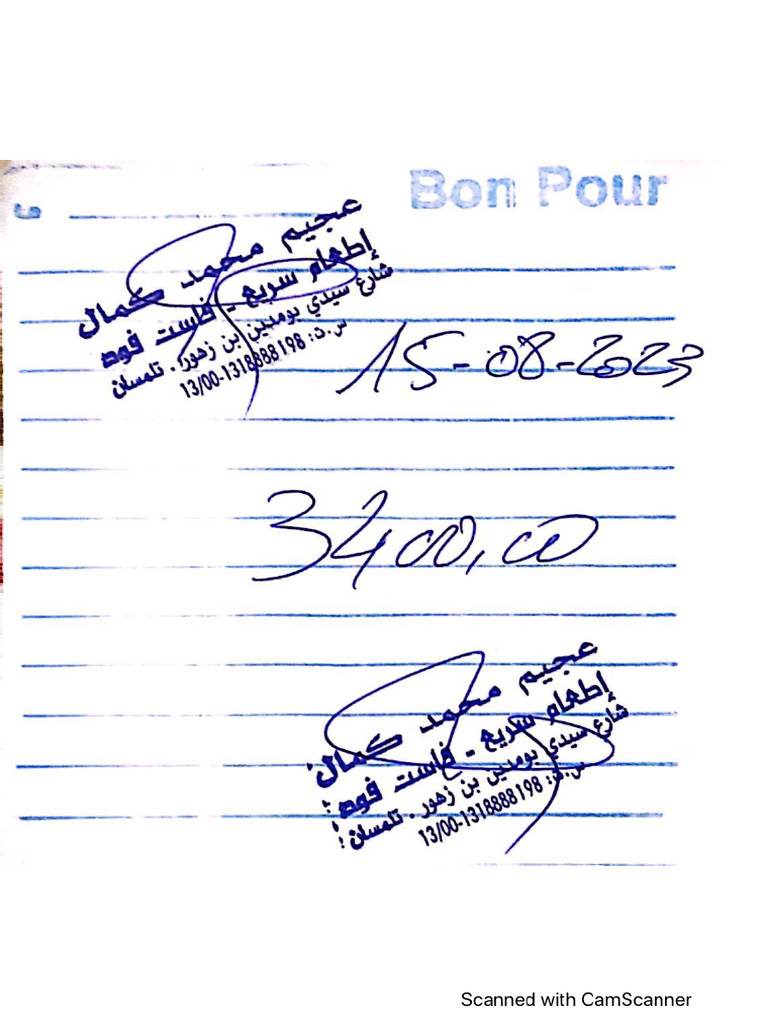 Bon Pour
عجيم محمد كمال
إطعام سريع - فاست فود
شارع سيدي بومدين بن زهور . تلمسان
س.ت: 13/00-1318888198
15-08-2023
3400,00
عجيم محمد كمال
إطعام سريع - فاست فود
شارع سيدي بومدين بن زهور . تلمسان
س.ت: 13/00-1318888198
Scanned with CamScanner